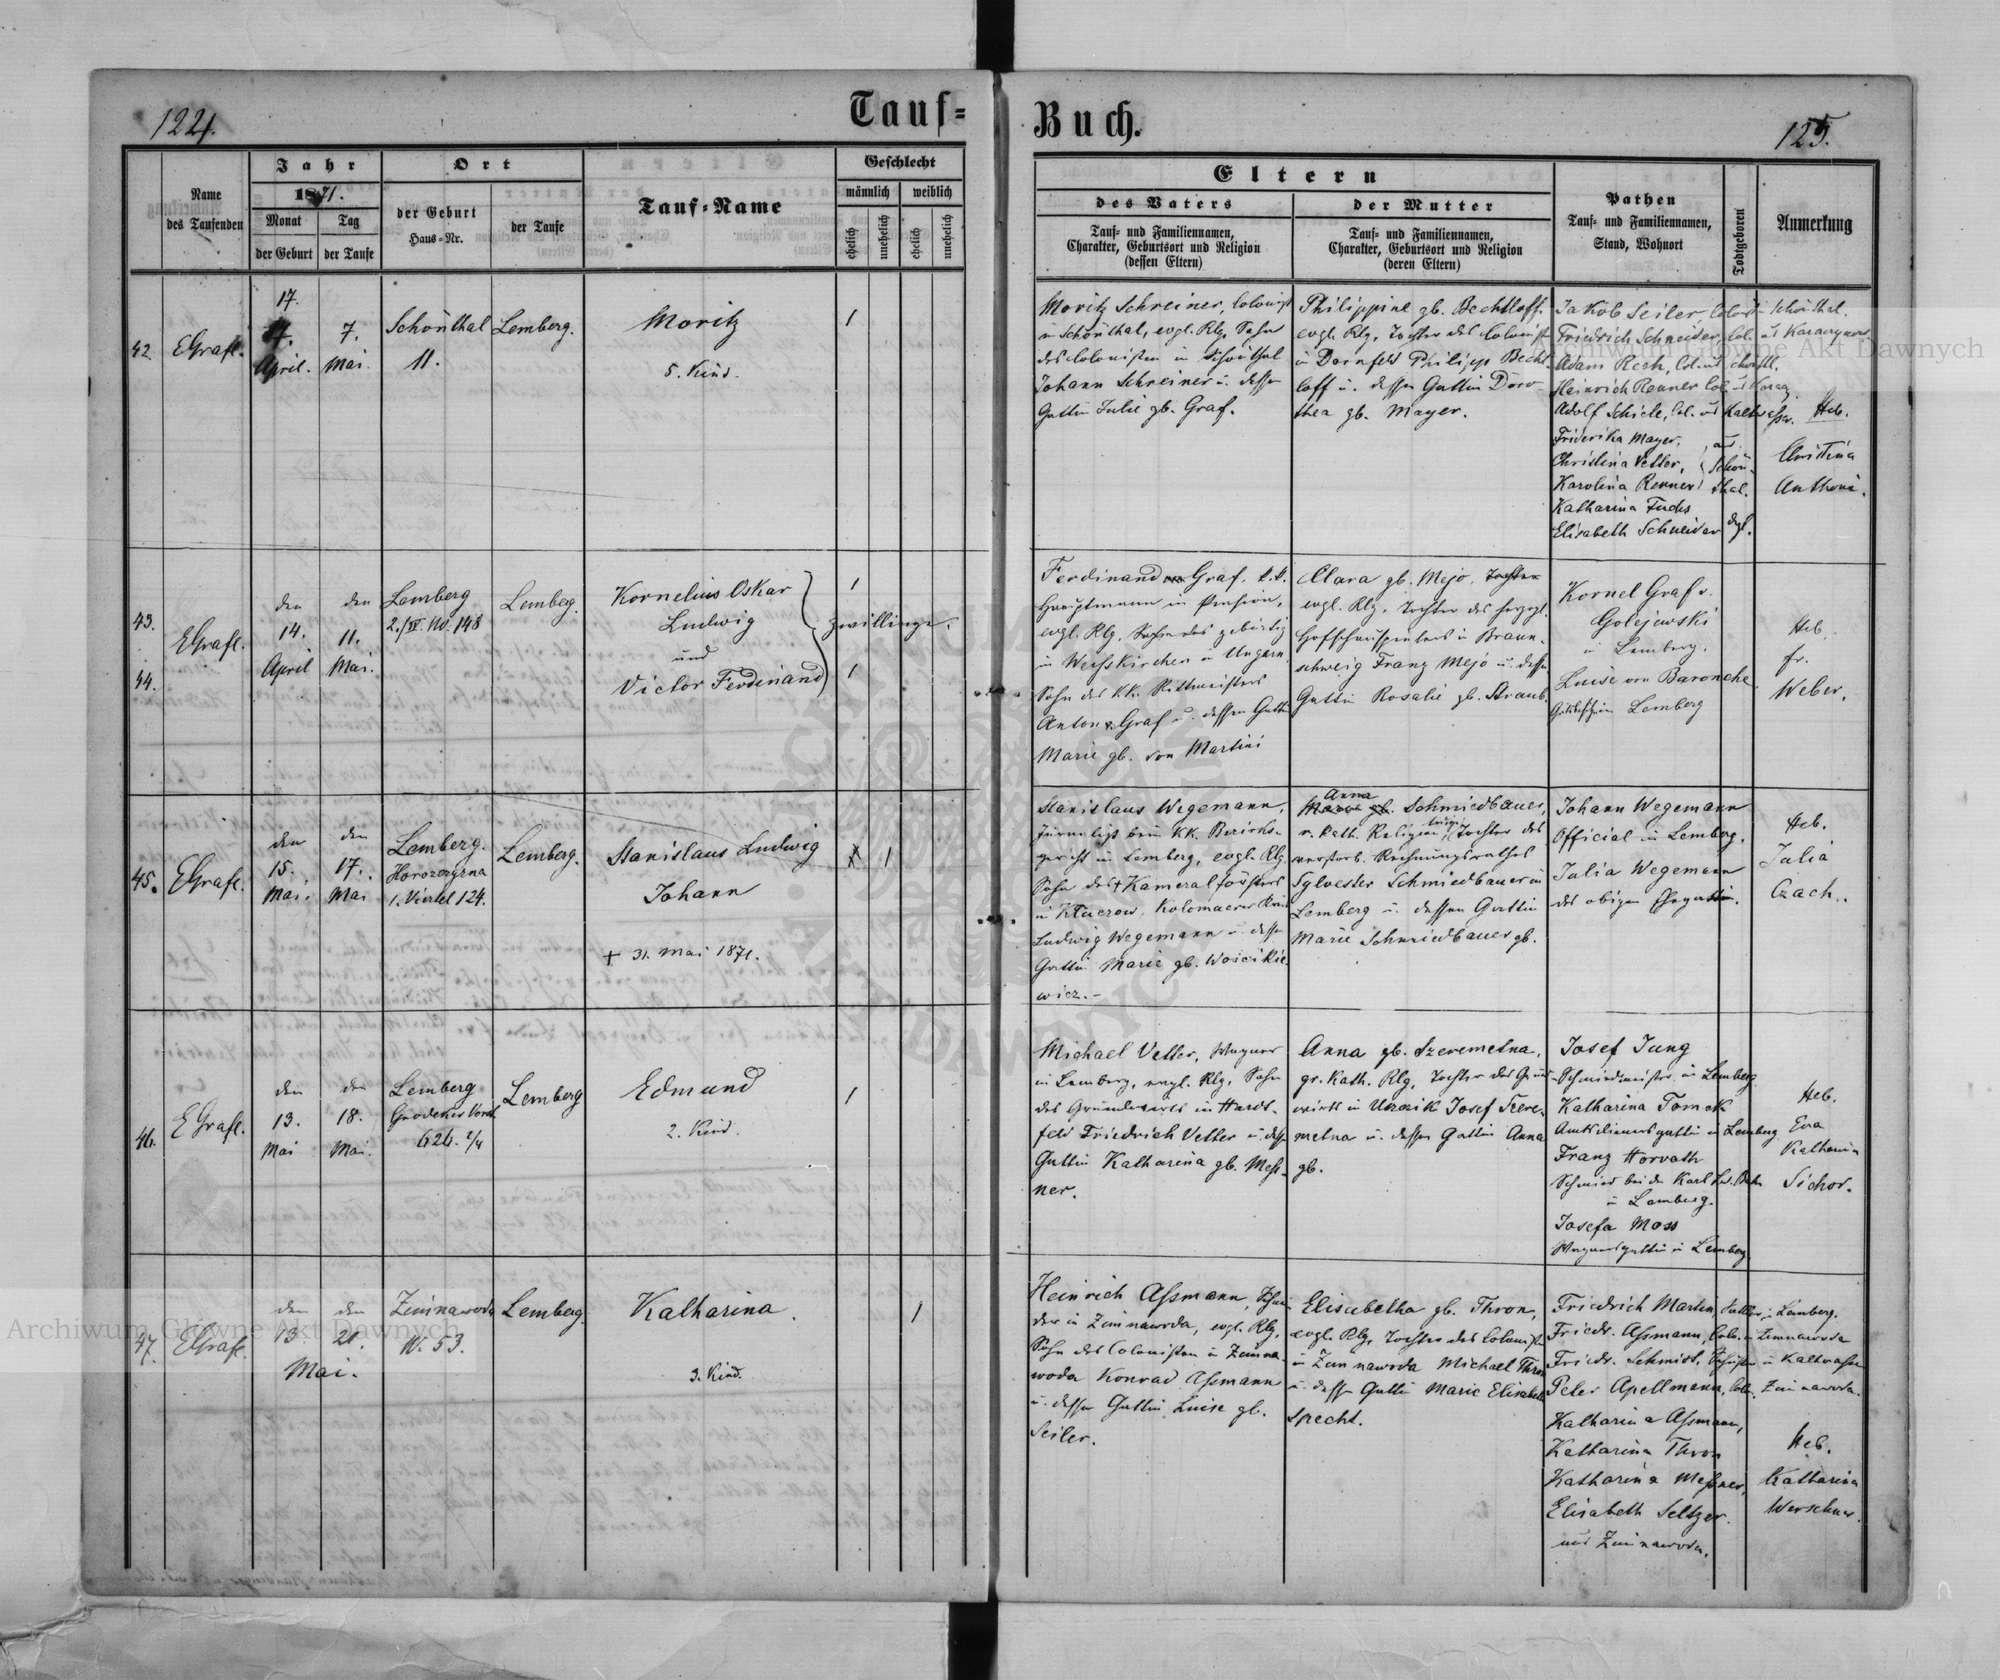 124.
Tauf=
Buch.
125.
Name
des Taufenden
Jahr
1871.
Monat
der Geburt
Tag
der Taufe
Ort
der Geburt
Haus=Nr.
der Taufe
Tauf=Name
Geschlecht
männlich
weiblich
ehelich
unehelich
ehelich
unehelich
Eltern
des Vaters
Tauf= und Familiennamen,
Charakter, Geburtsort und Religion
(dessen Eltern)
der Mutter
Tauf= und Familiennamen,
Charakter, Geburtsort und Religion
(deren Eltern)
Pathen
Tauf= und Familiennamen,
Stand, Wohnort
Todtgeboren
Anmerkung
42
EGrafl.
17.
April.
7.
Mai.
Schönthal
11.
Lemberg.
Moritz
5. Kind.
1
Moritz Schreiner, Colonist
in Schönthal, evgl. Rlg. Sohn
des Colonisten in Schönthal
Johann Schreiner u. dessen
Gattin Julie gb. Graf.
Philippine gb. Bechtloff.
evgl. Rlg. Tochter des Colonist
in Dornfeld Philipp Becht
loff u. dessen Gattin Doro-
thea gb. Mayer.
Jakob Seiler, Colonist in Schönthal.
Friedrich Schneider, Col.
Adam Rech, Col. aus Schönthl.
Heinrich Renner Col.
Adolf Schick, Col. aus Kaltwasser.
Friderika Mayer.
Christina Vetter,
Karolina Renner
aus
Schön-
thal.
Katharina Fuchs
Elisabeth Schneider dgl.
Heb.
Christina
Anthoni.
43.
44.
EGrafl.
den
14.
April
den
11.
Mai.
Lemberg
2./IV. No. 148
Lemberg.
Kornelius Oskar
Ludwig
und
Victor Ferdinand
Zwillinge.
1
1
Ferdinand Graf. k.k.
Hauptmann in Pension,
evgl. Rlg. gebürtig
in Weißkirchen in Ungarn
Sohn des KK. Rittmeisters
Anton v. Graf u. dessen Gattin
Marie gb. von Martini
Clara gb. Mejo. Tochter
evgl. Rlg. Tochter des herzogl.
Hofschauspielers in Braun-
schweig Franz Mejo u. dessen
Gattin Rosalie gb. Straub.
Kornel Graf v.
Golejewski
in Lemberg.
Luise von Baroneche
Lemberg
Heb.
fr.
Weber.
45.
EGrafl.
den
15.
Mai.
den
17.
Mai
Lemberg.
Horozozyzna
1. Viertel 124.
Lemberg.
Stanislaus Ludwig
Johann
+ 31. Mai 1871.
1
Stanislaus Wegemann,
beim KK. Bezirks-
gericht in Lemberg, evgl. Rlg.
Sohn des + Kameralförsters
in Kluczow, Kolomaeer Kreis
Ludwig Wegemann u. dessen
Gattin Marie gb. Woicikie-
wicz.-
Anna
Maria gb. Schmiedbauer,
r. kath. Religion, Tochter des
verstorb. Rechnungsrathes
Sylvester Schmiedbauer in
Lemberg u. dessen Gattin
Marie Schmiedbauer gb.
Johann Wegemann
Official in Lemberg.
Julia Wegemann
des obigen Ehegattin.
Heb.
Julia
Czach.
46.
EGrafl.
den
13.
Mai
den
18.
Mai.
Lemberg
Grodeker Vorst.
626. 2/4
Lemberg
Edmund
2. Kind.
1
Michael Vetter, Wagner
in Lemberg, evgl. Rlg. Sohn
des Grundwirts in Hart-
feld Friedrich Vetter u. dessen
Gattin Katharina gb. Meß-
ner.
Anna gb. Szeremetna,
gr. Kath. Rlg. Tochter des Grund
wirts in Josef Szere-
metna u. dessen Gattin Anna
gb.
Josef Jung
Schmiedmeister in Lemberg
Katharina Tomek
Amtsdienersgattin in Lemberg
Franz Horvath
Schmied bei der Karl Lud. Bahn
in Lemberg.
Josefa Moss
Wagnersgattin in Lemberg
Heb.
Eva
Katharina
Sichor.
47.
EGrafl.
den
13
Mai.
den
21.
Zimnawoda
N. 53.
Lemberg
Katharina.
3. Kind.
1
Heinrich Aßmann, Schnei-
der in Zimnawoda, evgl. Rlg.
Sohn des Colonisten in Zimna
woda Konrad Aßmann
u. dessen Gattin Luise gb.
Seiler.
Elisabetha gb. Thron,
evgl. Rlg. Tochter des Colonisten
in Zimnawoda Michael Thron
u. dessen Gattin Marie Elisabeth
Specht.
Friedrich Martin, Sattler in Lemberg.
Friedr. Aßmann, Colo. in Zimnawoda
Friedr. Schmidt, Schuster in Kaltwasser
Peter Apellmann, Col. Zimnawoda.
Katharina Aßmann,
Katharina Thron
Katharina Meßner,
Elisabeth Seltzer.
aus Zimnawoda.
Heb.
Katharina
Werschner.
Archiwum Główne Akt Dawnych
Archiwum Główne Akt Dawnych